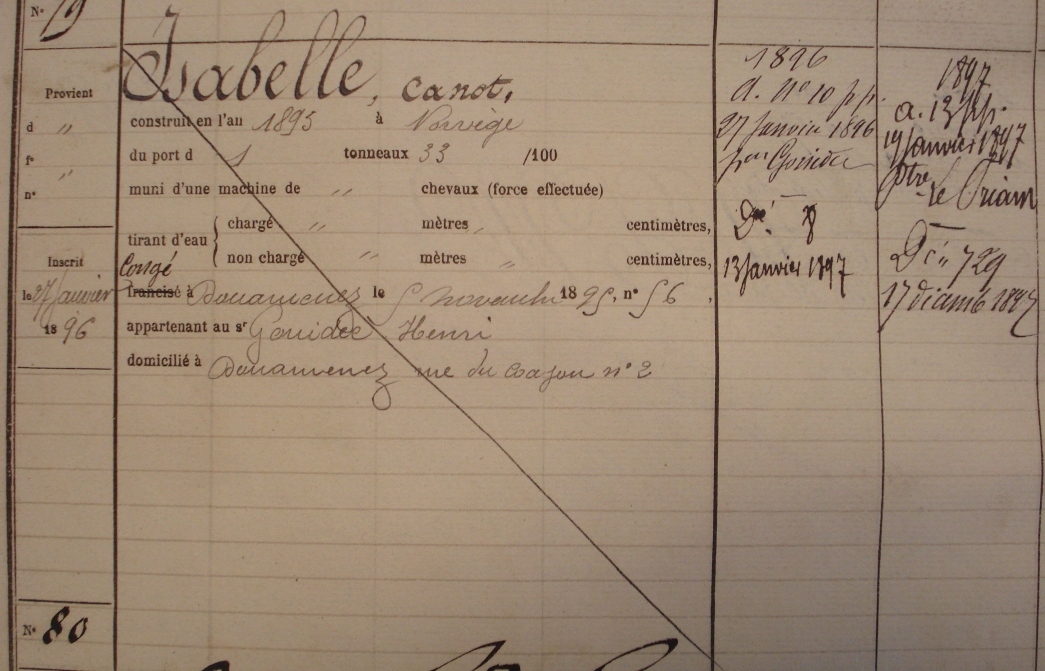 N° 79
Isabelle, canot,
Provient
d "
f° "
n°
construit en l'an 1895 à Norvège
du port d 1 tonneaux 33 /100
muni d'une machine de " chevaux (force effectuée)
tirant d'eau { chargé " mètres " centimètres,
non chargé " mètres " centimètres,
Inscrit
le 27 Janvier
1896
Congé
francisé à Douarnenez le 5 novembre 1895, n° 56.
appartenant au sr Henri
domicilié à Douarnenez rue du n° 2
1896
a. n° 10 p.p.
27 Janvier 1896
Dcé 8
13 Janvier 1897
1897
a. 13 p.p.
19 Janvier 1897
ptr Le
Dcé 729
17 1897
N° 80